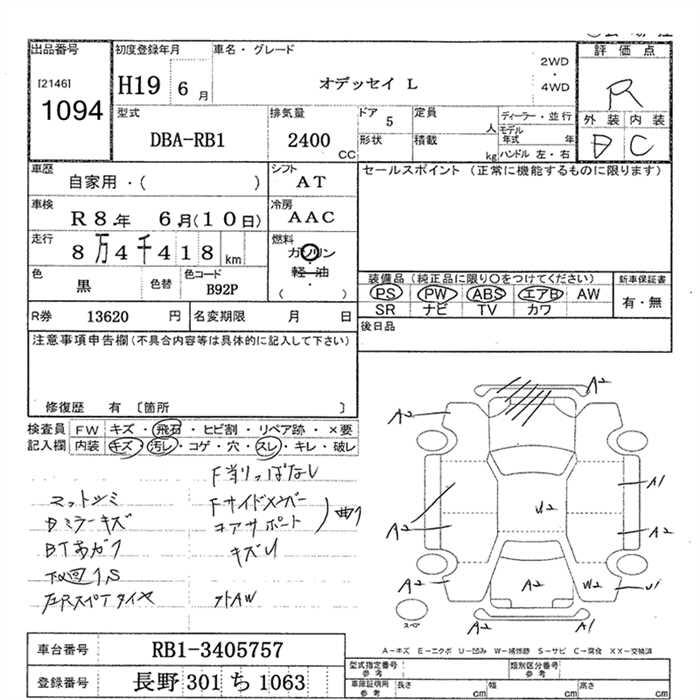 出品番号 初度登録年月 車名・グレード 評価点
[2146] 1094 H19 6月 オデッセイ L 2WD・4WD R
型式 排気量 ドア 定員 ディーラー・並行 外装 内装
DBA-RB1 2400CC 5 人 モデル年式 年 D C
形状 積載 kg ハンドル 左・右
車歴 自家用・( ) シフト AT セールスポイント (正常に機能するものに限ります)
車検 R8年 6月(10日) 冷房 AAC
走行 8万4千418km 燃料 ガソリン・軽油・( )
色 黒 色替 色コード B92P
装備品 (純正品に限り○をつけてください) 新車保証書
PS PW ABS エアB AW 有・無
SR ナビ TV カワ
R券 13620円 名変期限 月 日 後日品
注意事項申告欄(不具合内容等は具体的に記入して下さい)
修復歴 有 〔箇所 〕
検査員 FW キズ・飛石・ヒビ割・リペア跡・×要
記入欄 内装 キズ・汚レ・コゲ・穴・スレ・キレ・破レ
F当りっぱなし
マットシミ Fサイドメンバー
Bミラーキズ コアサポート 曲り
キズU
外AW
A2
A2
A1
U2
A2
A2
A2
A2
W2
U1
A2
A1
スペア
A-キズ E-エクボ U-凹み W-補修跡 S-サビ C-腐食 XX-交換済
車台番号 RB1-3405757
型式指定番号 参考 類別区分番号 参考
登録番号 長野 301 ち 1063
車庫証明用 参考 長さ cm 幅 cm 高さ cm